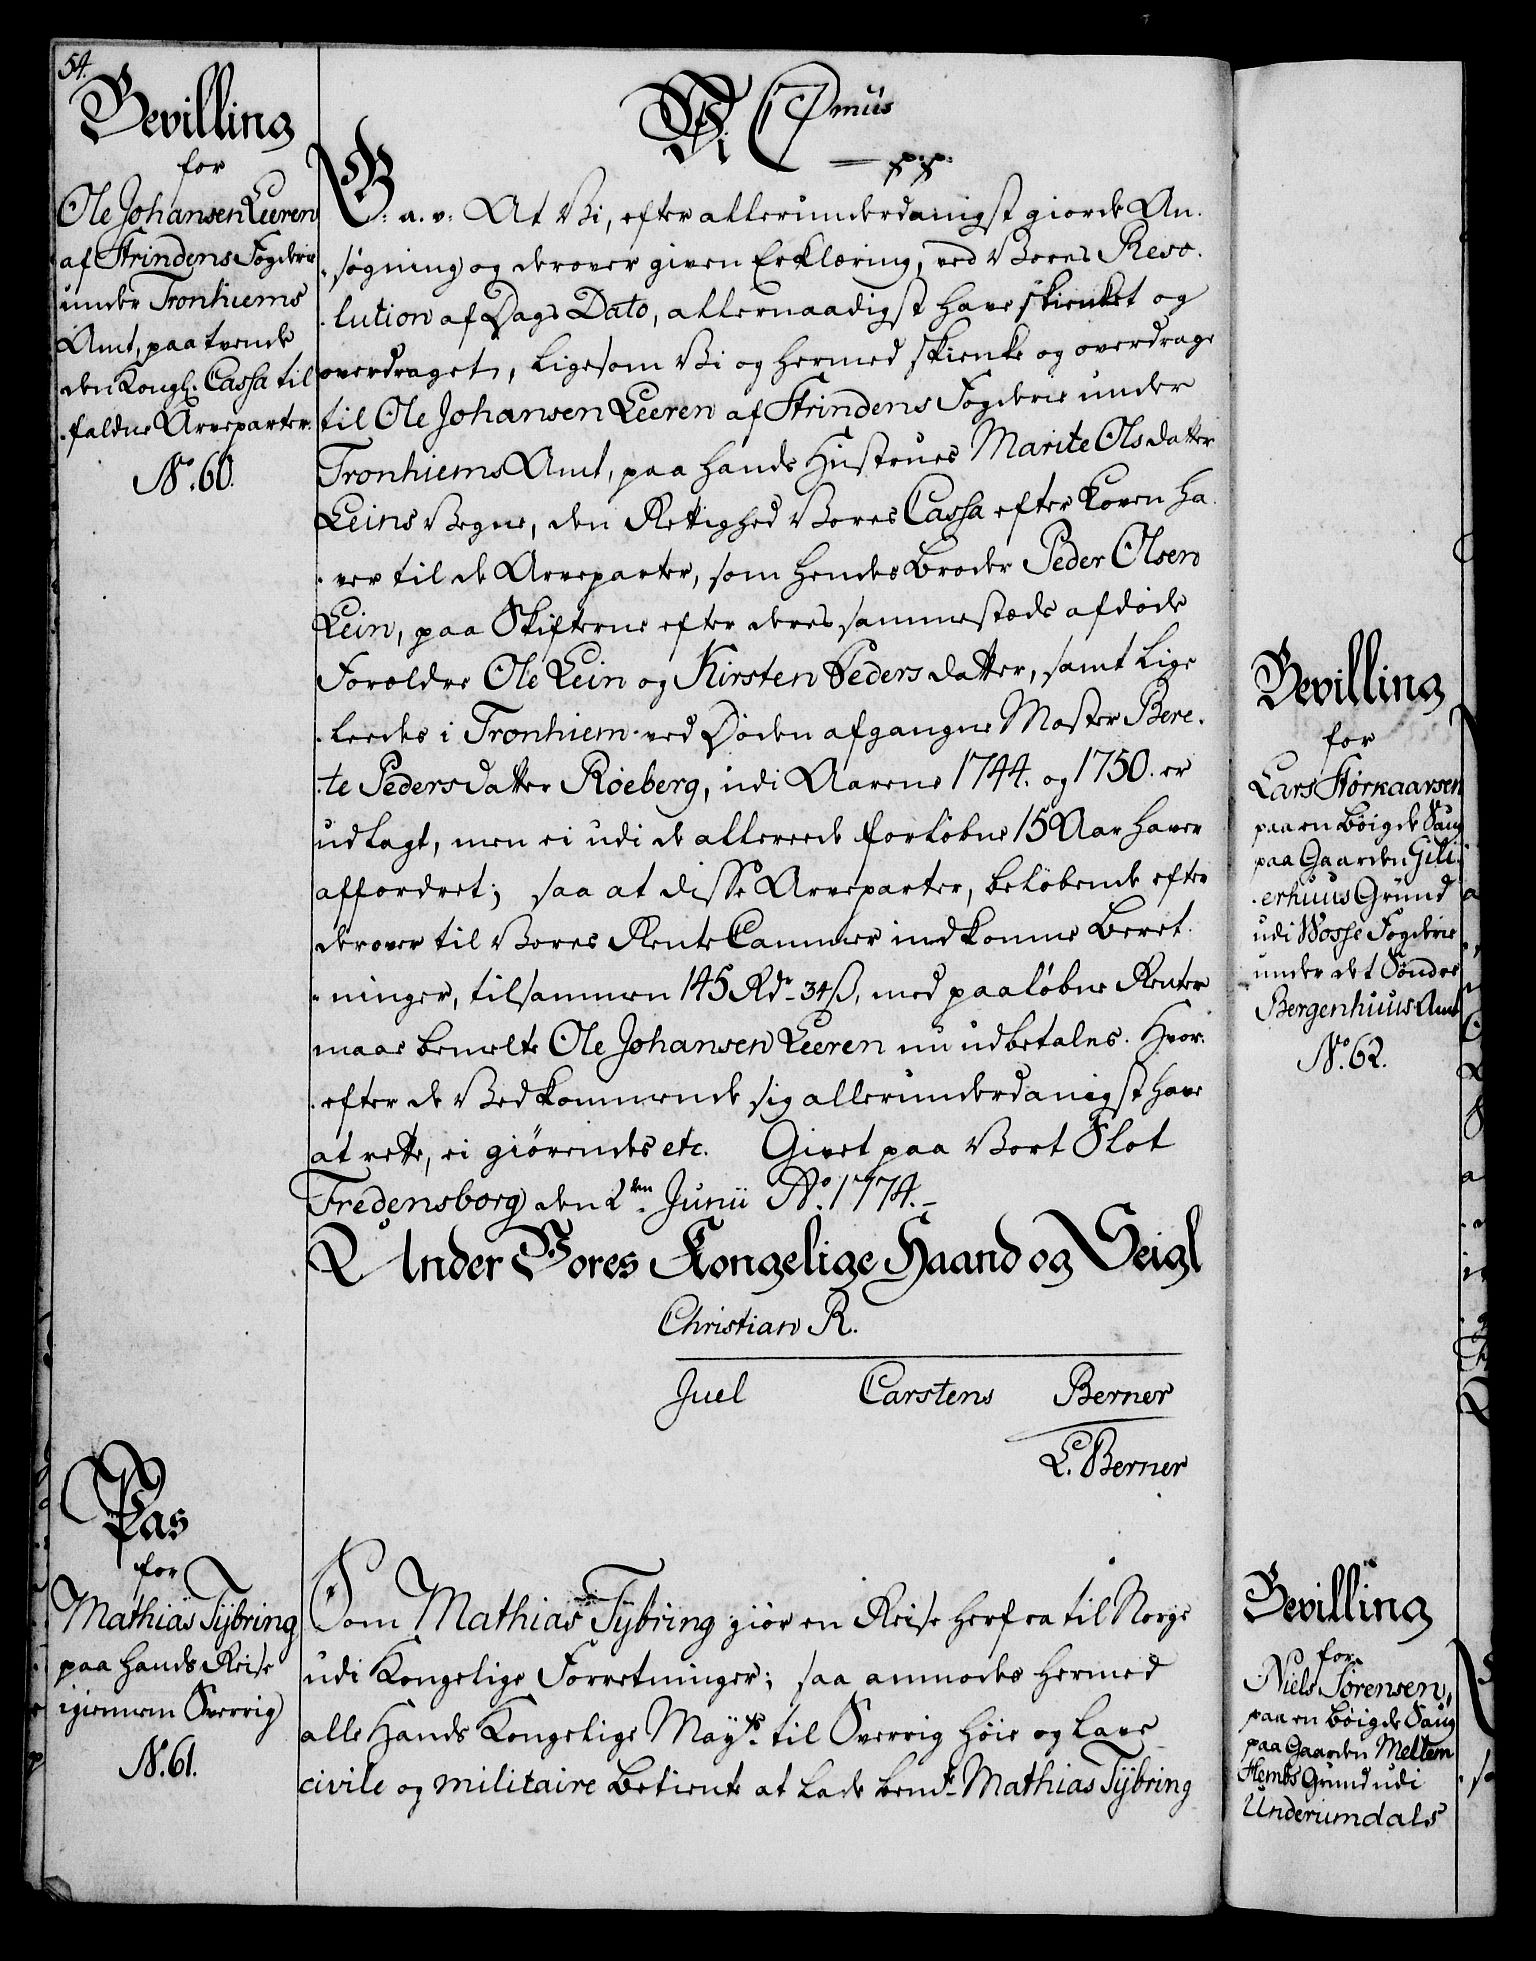 54.
Bevilling
for
Ole Johansen Leeren
af Strindens Fogderie
under Tronhiems
Amt, paa tvende
den Kongl. Cassa til
faldne Arveparter.
No. 60.
Vi C7mus
pp.
G: a. v: At Vi, efter allerunderdanigst giorde An-
søgning og derover given Erklæring, ved Vores Reso-
lution af Dags Dato, allernaadigst have skienket og
overdraget, ligesom Vi og hermed skienke og overdrage
til Ole Johansen Leeren af Strindens Fogderie under
Tronhiems Amt, paa hands Hustrues Marite Olsdatter
Leins Vegne, den Rettighed Vores Cassa efter Loven ha-
ver til de Arveparter, som hendes Broder Peder Olsen
Lein, paa Skifterne efter deres sammestæds afdøde
Forældre Ole Lein og Kirsten Pedersdatter, samt lige-
leedes i Tronhiem ved Døden afgangne Moster Bere-
te Pedersdatter Røeberg, udi Aarene 1744. og 1750. er
udlagt, men ei udi de allereede forløbne 15 Aar haver
affordret; saa at disse Arveparter, beløbende efter
derover til Vores Rente Cammer indkomne Beret-
ninger, tilsammen 145 Rdr. 34 ß, med paaløbne Renter
maae bemelte Ole Johansen Leeren nu udbetales. Hvor-
efter de Vedkommende sig allerunderdanigst have
at rette, ei giørendes etc. Givet paa Vort Slot
Fredensborg den 2den Junii Ao. 1774.
Under Vores Kongelige Haand og Seigl
Christian R.
Juel Carstens Berner
L. Berner
Pas
for
Mathias Tybring
paa hands Reise
igiennem Sverrig
No. 61.
Som Mathias Tybring giør en Reise herfra til Norge
udi Kongelige Forretninger; saa anmodes hermed
alle Hands Kongelige Mayts. til Sverrig høie og lave
civile og militaire Betiente at lade bemte. Mathias Tybring
Bevilling
for
Lars Størkaarsen
paa en bøigde Saug
paa Gaarden Gili-
erhuus Grund
udi Wosse Fogderie
under det Søndre
Bergenhuus Amt
No. 62.
Bevilling
for
Niels Sørensen,
paa en bøigde Saug
paa Gaarden Mellem
Hembs Grund udi
Underumdals